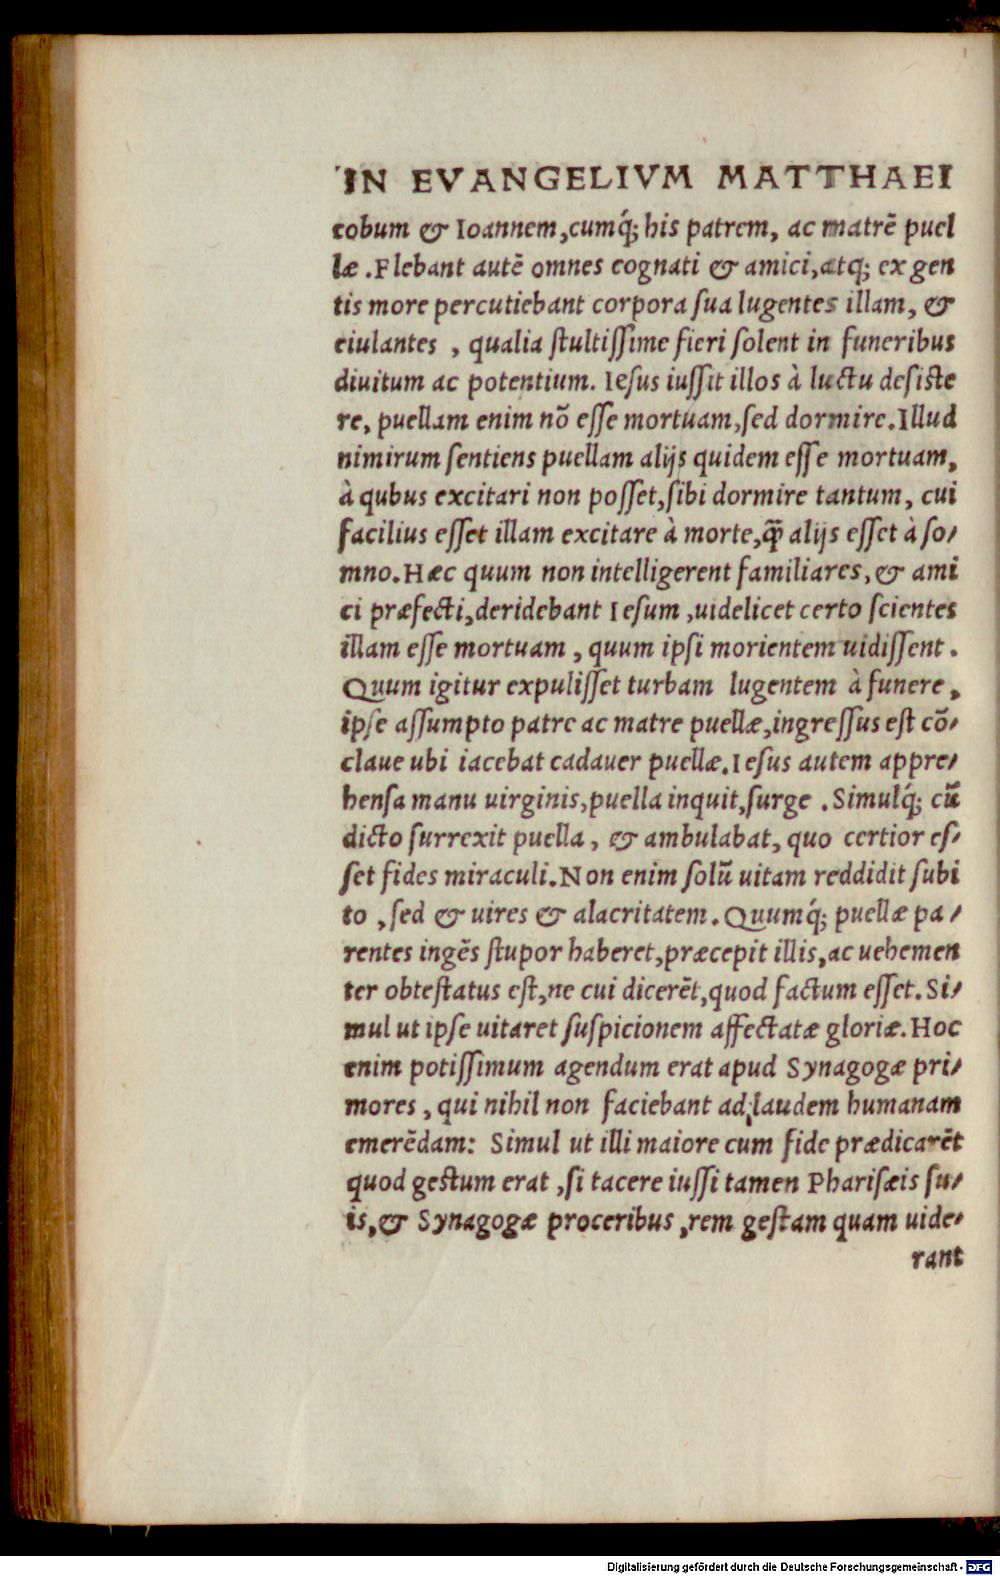 IN EVANGELIVM MATTHAEI
cobum & Ioannem, cumq́; his patrem, ac matrẽ puel
læ. Flebant autẽ omnes cognati & amici, atq; ex gen
tis more percutiebant corpora sua lugentes illam, &
eiulantes, qualia stultissime fieri solent in funeribus
diuitum ac potentium. Iesus iussit illos à luctu desiste
re, puellam enim nõ esse mortuam, sed dormire. Illud
nimirum sentiens puellam alijs quidem esse mortuam,
à qubus excitari non posset, sibi dormire tantum, cui
facilius esset illam excitare à morte, q̃ alijs esset à so/
mno. Hæc quum non intelligerent familiares, & ami
ci præfecti, deridebant Iesum, uidelicet certo scientes
illam esse mortuam, quum ipsi morientem uidissent.
Quum igitur expulisset turbam lugentem à funere,
ipse assumpto patre ac matre puellæ, ingressus est cõ/
claue ubi iacebat cadauer puellæ. Iesus autem appre/
hensa manu uirginis, puella inquit, surge. Simulq́; cũ
dicto surrexit puella, & ambulabat, quo certior es/
set fides miraculi. Non enim solũ uitam reddidit subi
to, sed & uires & alacritatem. Quumq́; puellæ pa/
rentes ingẽs stupor haberet, præcepit illis, ac uehemen
ter obtestatus est, ne cui dicerẽt, quod factum esset. Si/
mul ut ipse uitaret suspicionem affectatæ gloriæ. Hoc
enim potissimum agendum erat apud Synagogæ pri/
mores, qui nihil non faciebant ad laudem humanam
emerẽdam: Simul ut illi maiore cum fide prædicarẽt
quod gestum erat, si tacere iussi tamen Pharisæis su/
is, & Synagogæ proceribus, rem gestam quam uide/
rant
Digitalisierung gefördert durch die Deutsche Forschungsgemeinschaft - DFG